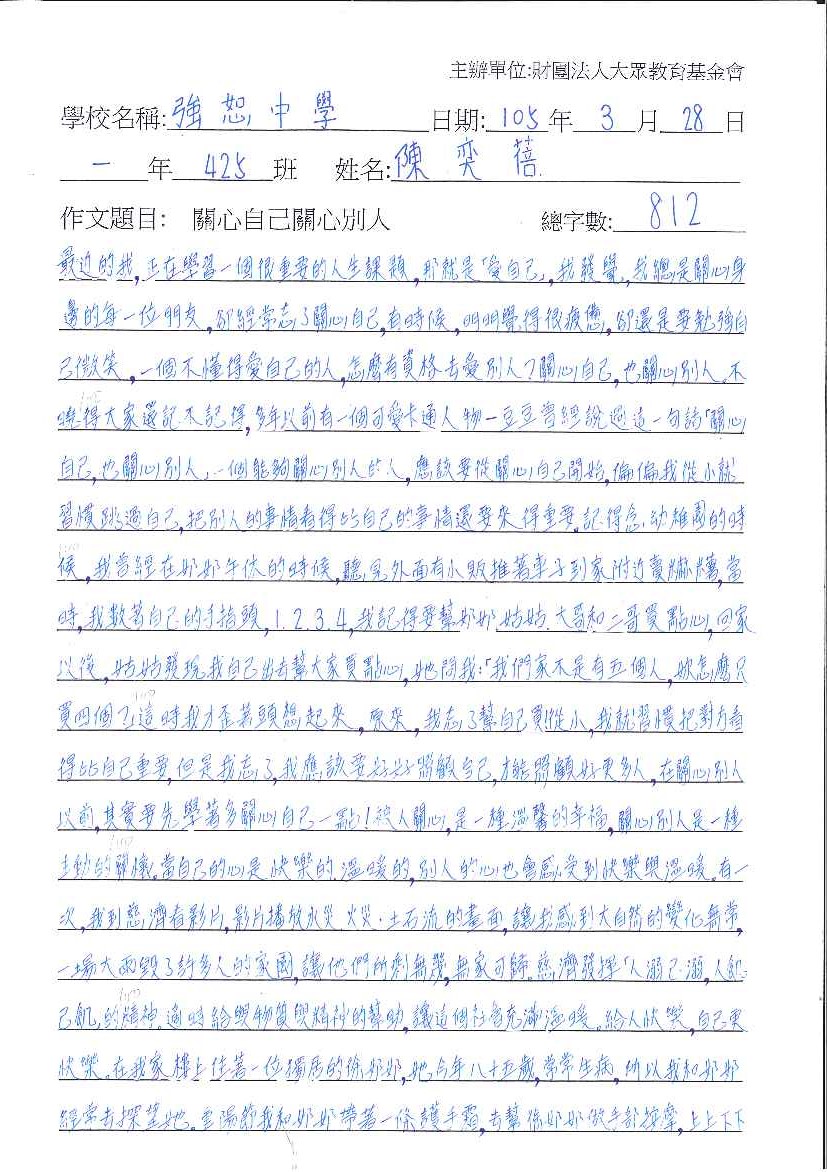 主辦單位:財團法人大眾教育基金會
學校名稱: 強恕中學 日期: 105 年 3 月 28 日
一 年 425 班 姓名: 陳奕蓓
作文題目: 關心自己關心別人 總字數: 812
最近的我,正在學習一個很重要的人生課題,那就是「愛自己」,我發覺,我總是關心身
邊的每一位朋友,卻經常忘了關心自己,有時候,明明覺得很疲憊,卻還是要勉強自
己微笑,一個不懂得愛自己的人,怎麼有資格去愛別人?關心自己,也關心別人。不
曉得大家還記不記得,多年以前有一個可愛卡通人物—豆豆曾經說過這一句話「關心
自己,也關心別人」一個能夠關心別人的人,應該要從關心自己開始,偏偏我從小就
習慣跳過自己,把別人的事情看得比自己的事情還要來得重要。記得念幼稚園的時
候,我曾經在奶奶午休的時候,聽見外面有小販推著車子到家附近賣麻糬,當
時,我數著自己的手指頭,1.2.3.4,我記得要幫奶奶.姑姑.大哥和二哥買點心,回家
以後,姑姑發現我自己出去幫大家買點心,她問我:「我們家不是有五個人,妳怎麼只
買四個?」這時我才歪著頭想起來,原來,我忘了幫自己買!從小,我就習慣把對方看
得比自己重要,但是我忘了,我應該要好好照顧自己,才能照顧好更多人,在關心別人
以前,其實要先學著多關心自己一點!被人關心,是一種溫馨的幸福,關心別人是一種
主動的關懷。當自己的心是快樂的.溫暖的,別人的心也會感受到快樂與溫暖。有一
次,我到慈濟看影片,影片播放水災.火災.土石流的畫面,讓我感到大自然的變化無常,
一場大雨毀了許多人的家園,讓他們所剩無幾,無家可歸。慈濟發揮「人溺己溺,人飢
己飢」的精神。適時給與物質與精神的幫助,讓這個社會充滿溫暖。給人快樂,自己更
快樂。在我家樓上住著一位獨居的徐奶奶,她今年八十五歲,常常生病,所以我和奶奶
經常去探望她。重陽節我和奶奶帶著一條護手霜,去幫徐奶奶做手部按摩,上上下下